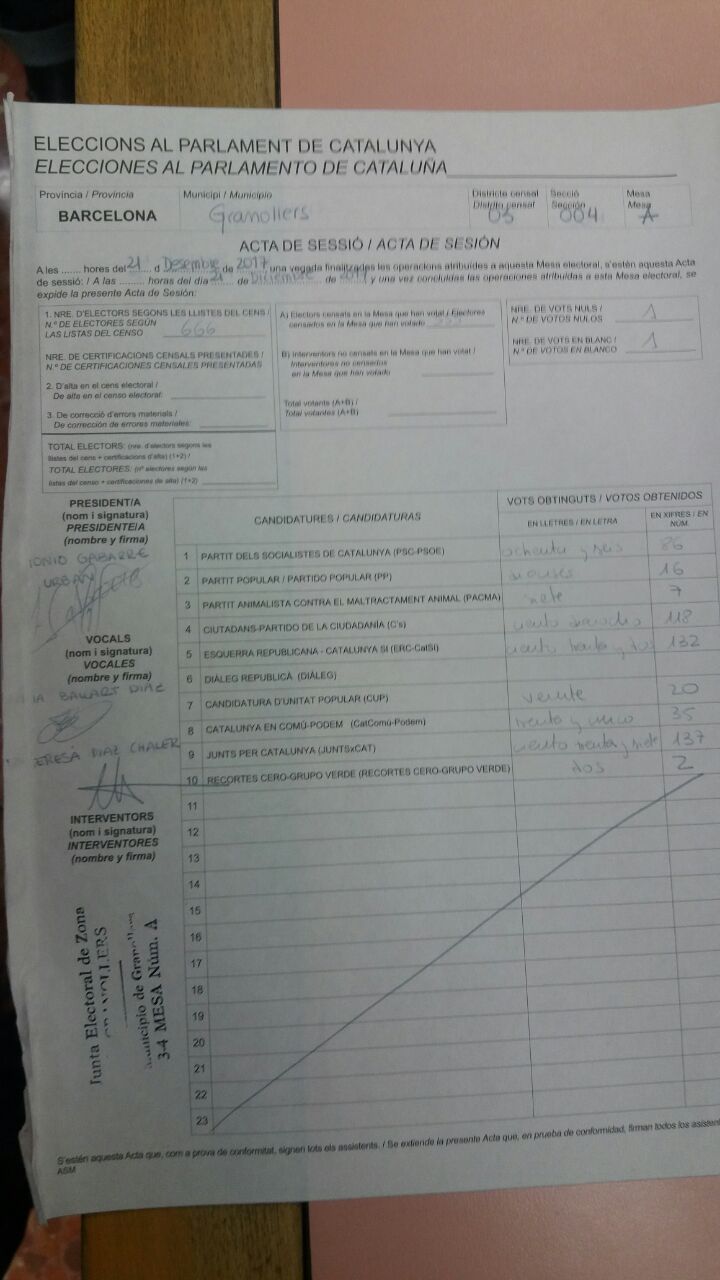 ELECCIONS AL PARLAMENT DE CATALUNYA
ELECCIONES AL PARLAMENTO DE CATALUÑA
Província / Provincia Municipi / Municipio Districte censal Secció Mesa
Distrito censal Sección Mesa
BARCELONA Granollers 03 004 A
ACTA DE SESSIÓ / ACTA DE SESIÓN
A les ....... hores del 21 d Desembre de 2017 una vegada finalitzades les operacions atribuïdes a aquesta Mesa electoral, s'estén aquesta Acta
de sessió: / A las ......... horas del día 21 de Diciembre de 2017 y una vez concluidas las operaciones atribuidas a esta Mesa electoral, se
expide la presente Acta de Sesión:
1. NRE. D'ELECTORS SEGONS LES LLISTES DEL CENS /
N.º DE ELECTORES SEGÚN
LAS LISTAS DEL CENSO 666
NRE. DE CERTIFICACIONS CENSALS PRESENTADES /
N.º DE CERTIFICACIONES CENSALES PRESENTADAS
2. D'alta en el cens electoral /
De alta en el censo electoral:
3. De correcció d'errors materials /
De corrección de errores materiales:
TOTAL ELECTORS: (nre. d'electors segons les
llistes del cens + certificacions d'alta) (1+2) /
TOTAL ELECTORES: (nº electores según las
listas del censo + certificaciones de alta) (1+2)
A) Electors censats en la Mesa que han votat / Electores
censados en la Mesa que han votado
B) Interventors no censats en la Mesa que han votat /
Interventores no censados
en la Mesa que han votado
Total votants (A+B) /
Total votantes (A+B)
NRE. DE VOTS NULS / 1
N.º DE VOTOS NULOS
NRE. DE VOTS EN BLANC / 1
N.º DE VOTOS EN BLANCO
PRESIDENT/A
(nom i signatura)
PRESIDENTE/A
(nombre y firma)
IONIO GABARRE
URBAN
VOCALS
(nom i signatura)
VOCALES
(nombre y firma)
DIAZ
ERESA DIAZ CHALER
INTERVENTORS
(nom i signatura)
INTERVENTORES
(nombre y firma)
Junta Electoral de Zona
GRANOLLERS
Municipio de Granollers
3-4 MESA Núm. A
CANDIDATURES / CANDIDATURAS VOTS OBTINGUTS / VOTOS OBTENIDOS
EN LLETRES / EN LETRA EN XIFRES / EN NÚM.
1 PARTIT DELS SOCIALISTES DE CATALUNYA (PSC-PSOE) ochenta y seis 86
2 PARTIT POPULAR / PARTIDO POPULAR (PP) 16
3 PARTIT ANIMALISTA CONTRA EL MALTRACTAMENT ANIMAL (PACMA) siete 7
4 CIUTADANS-PARTIDO DE LA CIUDADANÍA (C's) ciento dieciocho 118
5 ESQUERRA REPUBLICANA - CATALUNYA SÍ (ERC-CatSÍ) ciento treinta y dos 132
6 DIÀLEG REPUBLICÀ (DIÀLEG)
7 CANDIDATURA D'UNITAT POPULAR (CUP) veinte 20
8 CATALUNYA EN COMÚ-PODEM (CatComú-Podem) treinta y cinco 35
9 JUNTS PER CATALUNYA (JUNTSxCAT) ciento treinta y siete 137
10 RECORTES CERO-GRUPO VERDE (RECORTES CERO-GRUPO VERDE) dos 2
11
12
13
14
15
16
17
18
19
20
21
22
23
S'estén aquesta Acta que, com a prova de conformitat, signen tots els assistents. / Se extiende la presente Acta que, en prueba de conformidad, firman todos los asistent
ASM